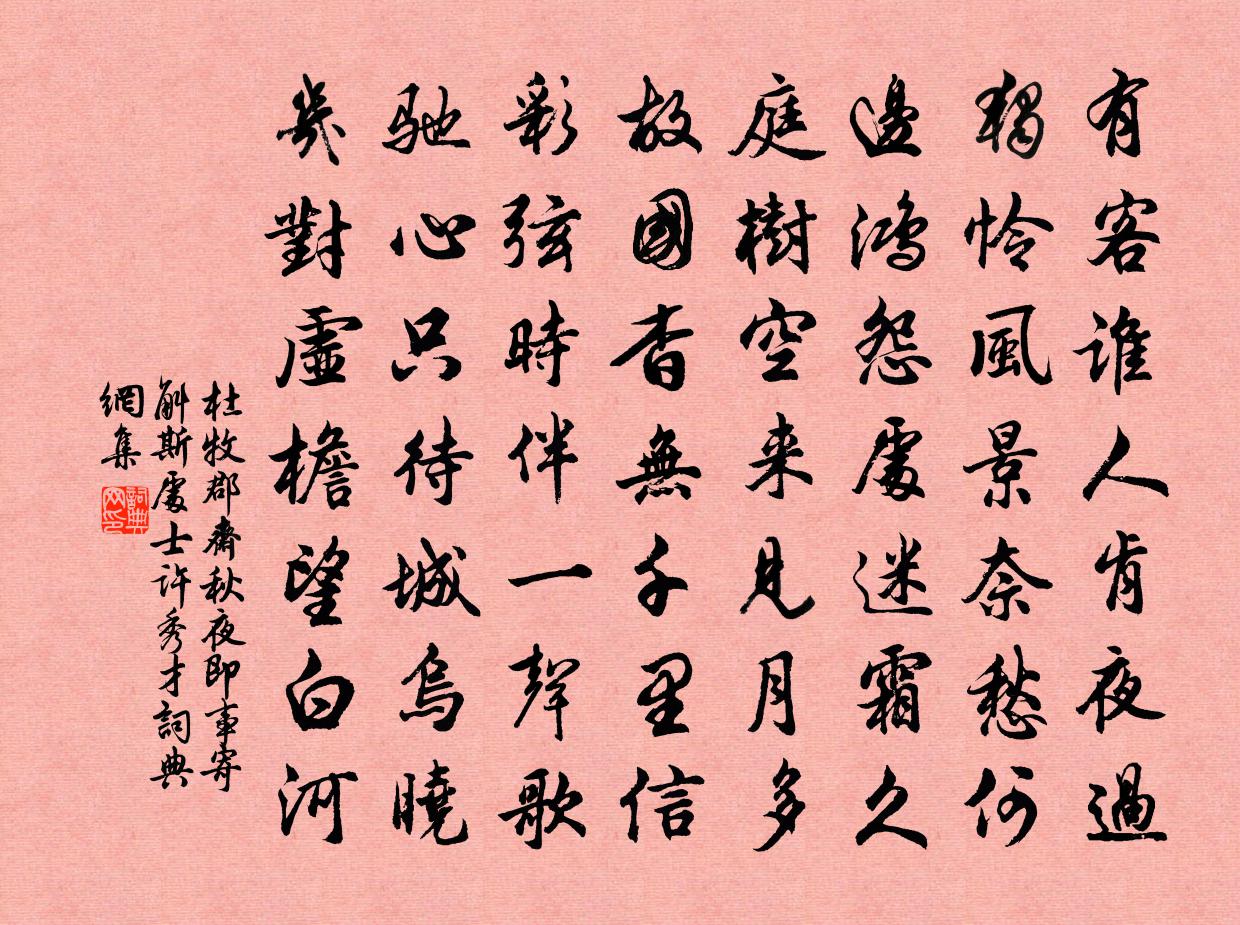 有客誰人肯夜過
獨憐風景奈愁何
邊鴻怨處迷霜久
庭樹空来見月多
故國杳無千里信
彩弦時伴一聲歌
馳心只待城烏曉
幾對虛檐望白河
杜牧郡齋秋夜即事寄
斛斯處士許秀才詞典
網集
詞典
网印